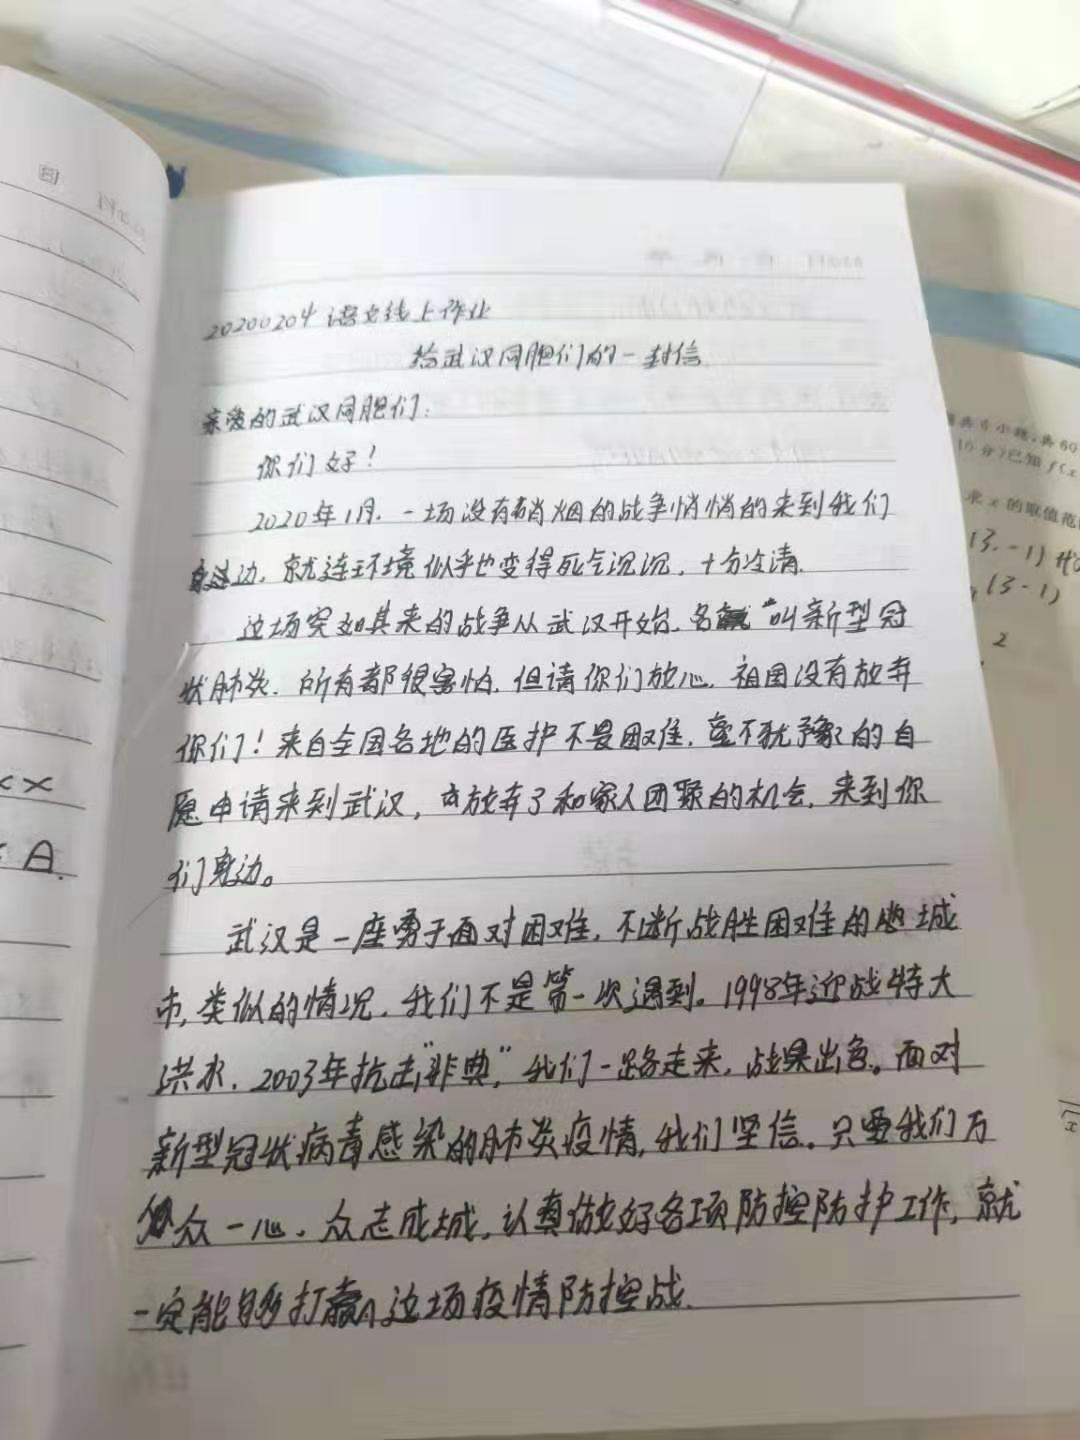 20200204 语文线上作业
给武汉同胞们的一封信
亲爱的武汉同胞们:
你们好!
2020年1月,一场没有硝烟的战争悄悄的来到我们
身边,就连环境似乎也变得死气沉沉,十分冷清.
这场突如其来的战争从武汉开始,名 叫新型冠
状肺炎.所有都很害怕,但请你们放心,祖国没有放弃
你们!来自全国各地的医护不畏困难,毫不犹豫的自
愿申请来到武汉,放弃了和家人团聚的机会,来到你
们身边。
武汉是一座勇于面对困难,不断战胜困难的城
市,类似的情况,我们不是第一次遇到。1998年迎战特大
洪水,2003年抗击“非典”,我们一路走来,战果出色。面对
新型冠状病毒感染的肺炎疫情,我们坚信。只要我们万
众一心,众志成城,认真做好各项防控防护工作,就
一定能够打赢这场疫情防控战.
共6小题,共60
已知f(x
求x的取值范
(3,-1)
(3-1)
2
××
A.